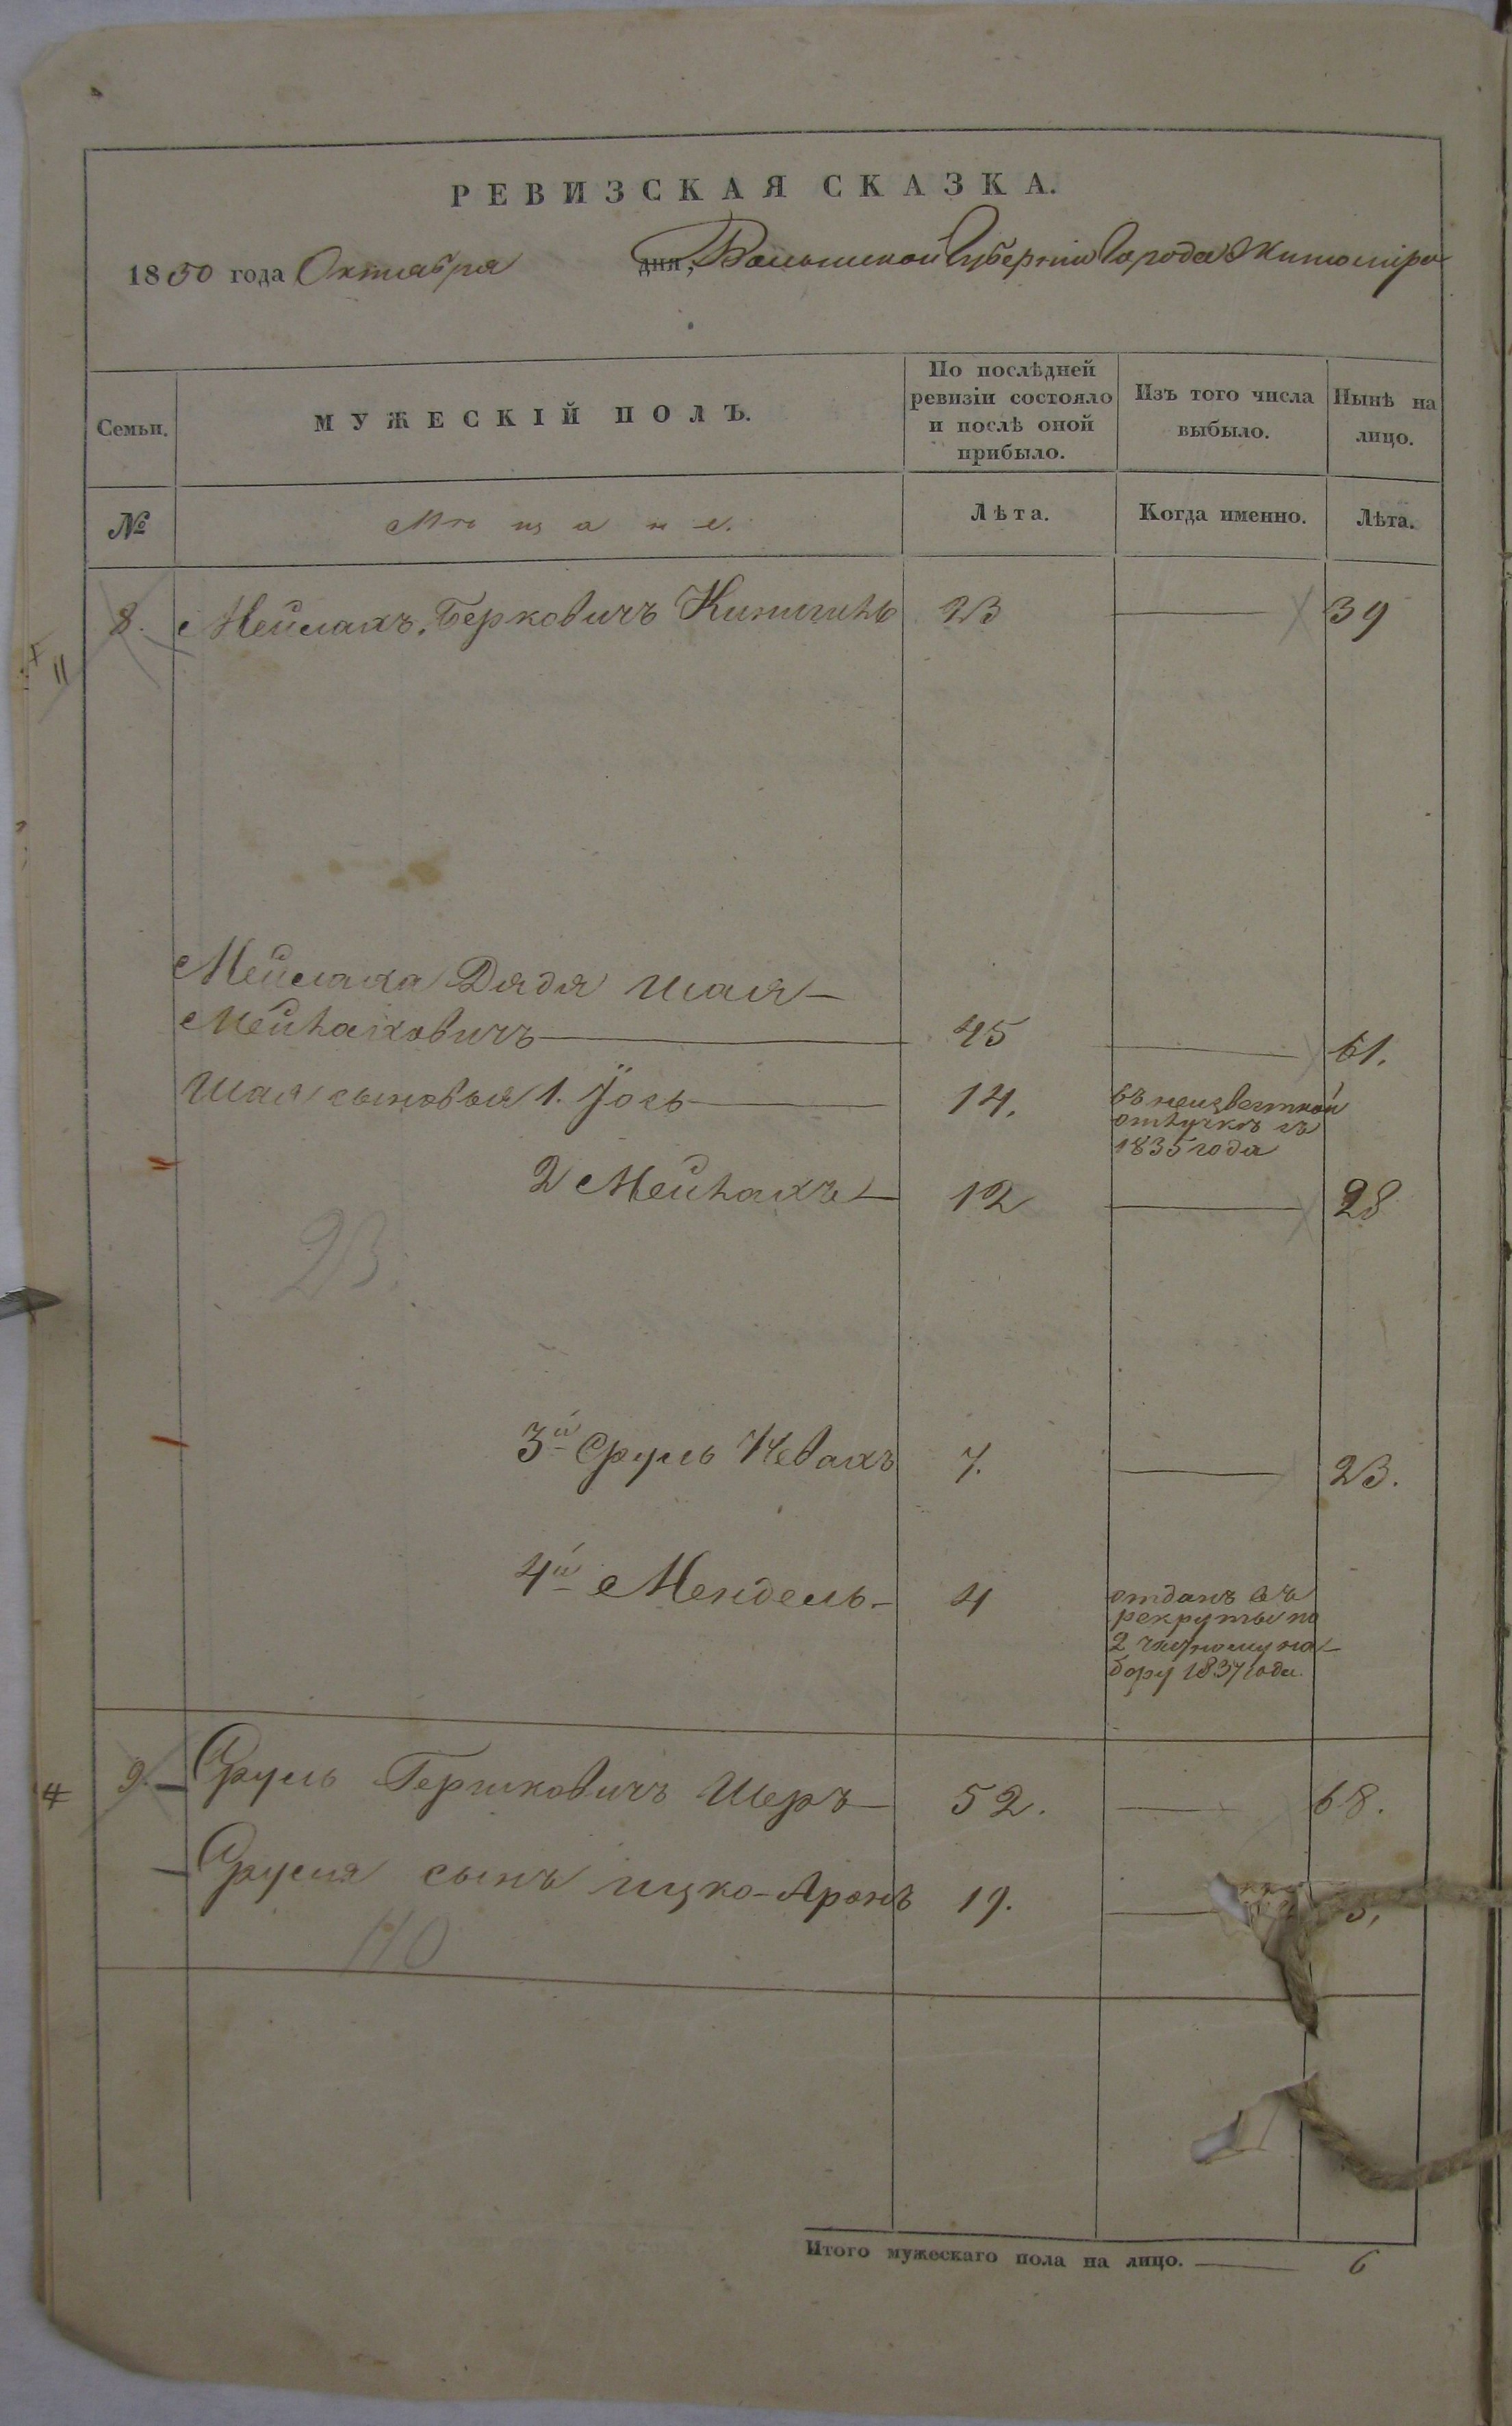 РЕВИЗСКАЯ СКАЗКА.
1850 года Октября дня, Волынской Губерніи Города Житомира
Семьи.
МУЖЕСКІЙ ПОЛЪ.
По послѣдней
ревизіи состояло
и послѣ оной
прибыло.
Изъ того числа
выбыло.
Нынѣ на
лицо.
№
Мѣщане.
Лѣта.
Когда именно.
Лѣта.
8. Мейлахъ Берковичъ 23 39
11
Мейлаха Дядя Шая
45 61.
Шаи сыновья 1. Йось 14. въ неизвестной
отлучкѣ съ
1835 года
2 12 28
23.
3й Сруль 7. 23.
4й Мендель 4 отданъ въ
рекруты по
2 частному на-
бору 1837 года.
9. Сруль Гершковичъ Шеръ 52. 68.
Сруля сынъ Ицко-Аронъ 19. 5,
110
Итого мужескаго пола на лицо. 6